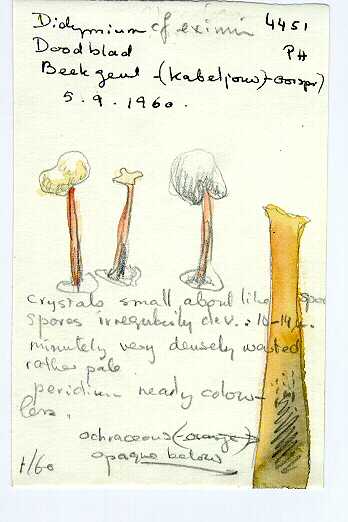 Didymium cf eximin 4451
Doodblad PH
Beekgeul - (Kabeljouw)
5.9.1960.
crystals small about like spor
spores irregularily dev. : 10-14µ.
minutely very densely warted
rather pale
peridium nearly colour-
less.
ochraceous (-orange)
opaque below
1/60